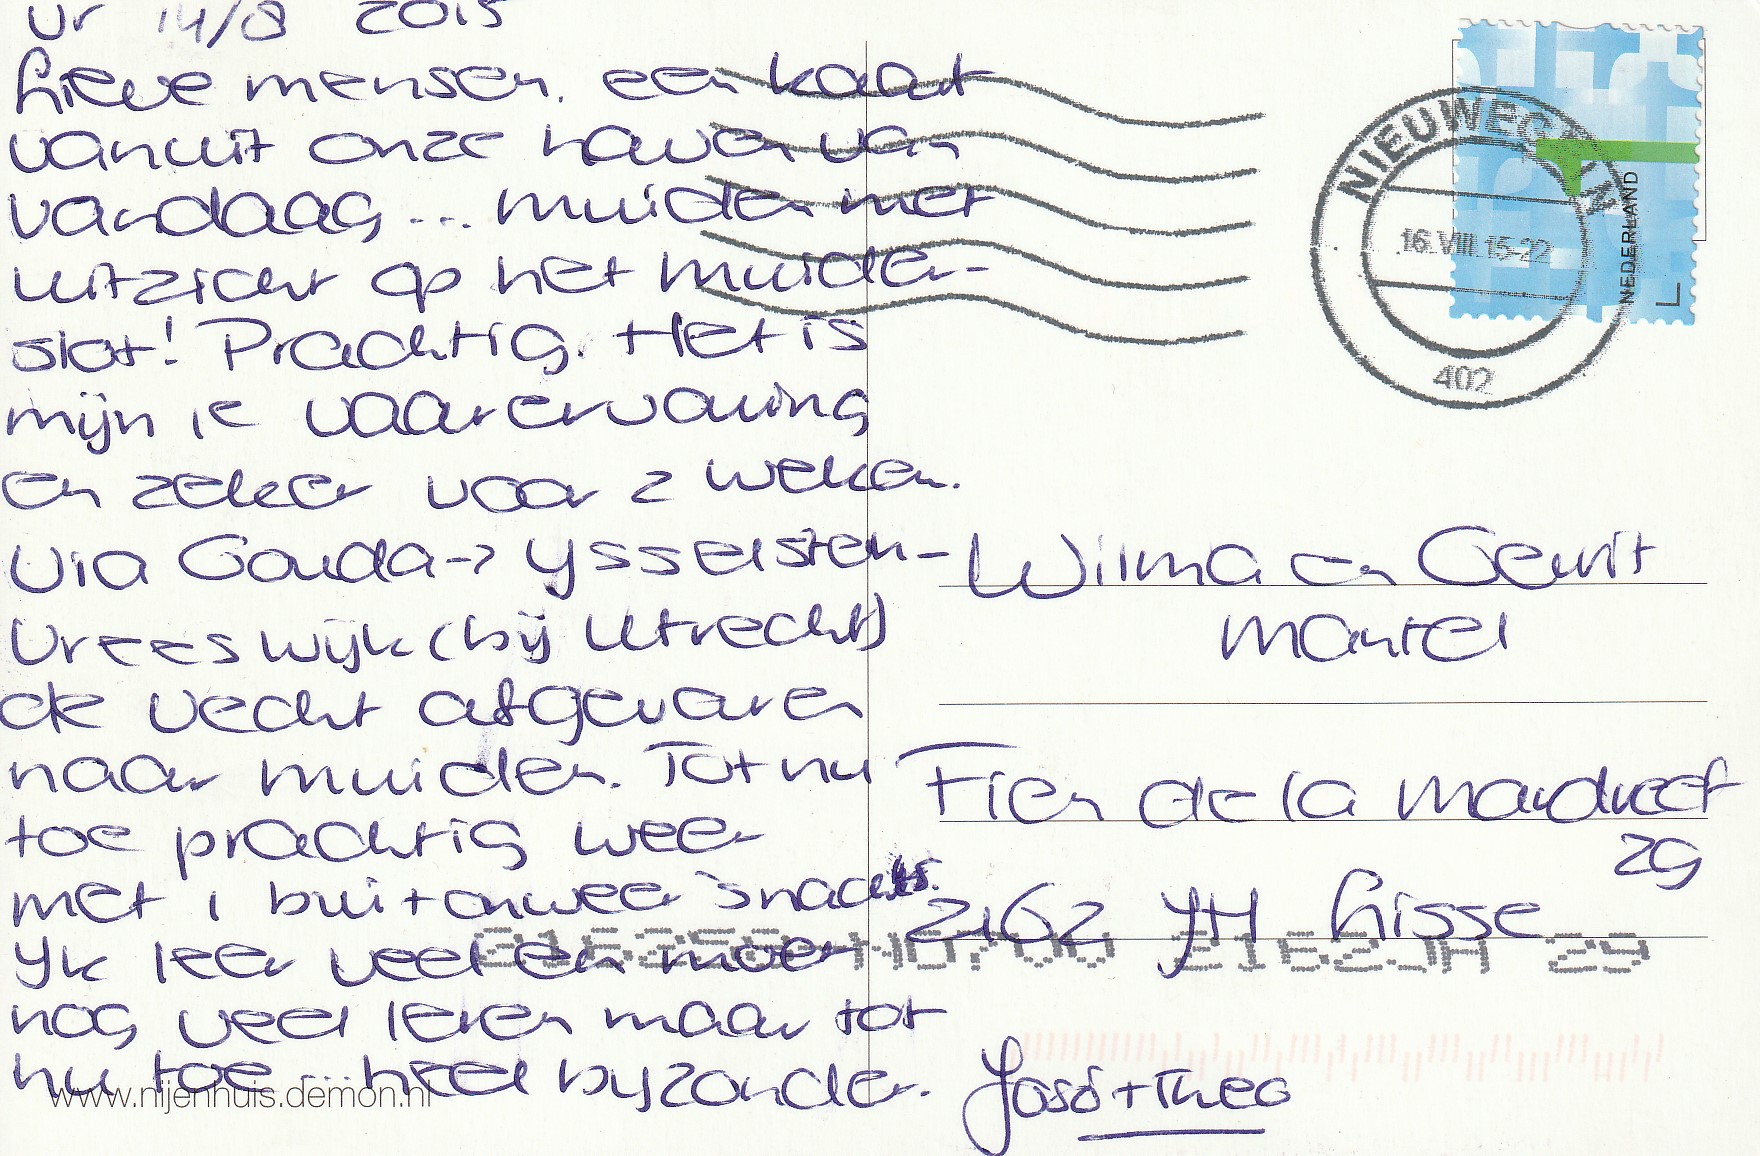 vr 14/8 2015
Lieve mensen. een kaart
vanuit onze haven van
vandaag ... muiden met
uitzicht op het muider-
slot! Prachtig. Het is
mijn 1e vaarervaring
en zeker voor 2 weken.
Via Gouda -> Ysselsten-
Vreeswijk (bij Utrecht)
de Vecht afgevaren
naar muiden. Tot nu
toe prachtig weer
met 1 bui + onweer 's nachts.
Yk leer veel en moet
nog veel leren maar tot
nu toe ... heel byzonder.
José + Theo
www.nijenhuis.demon.nl
NIEUWEGEIN
16.VIII.15-22
402
NEDERLAND
Wilma en Gerrit
Mantel
Fien de la Mardreef
29
2162 JH Lisse
2162JH 29